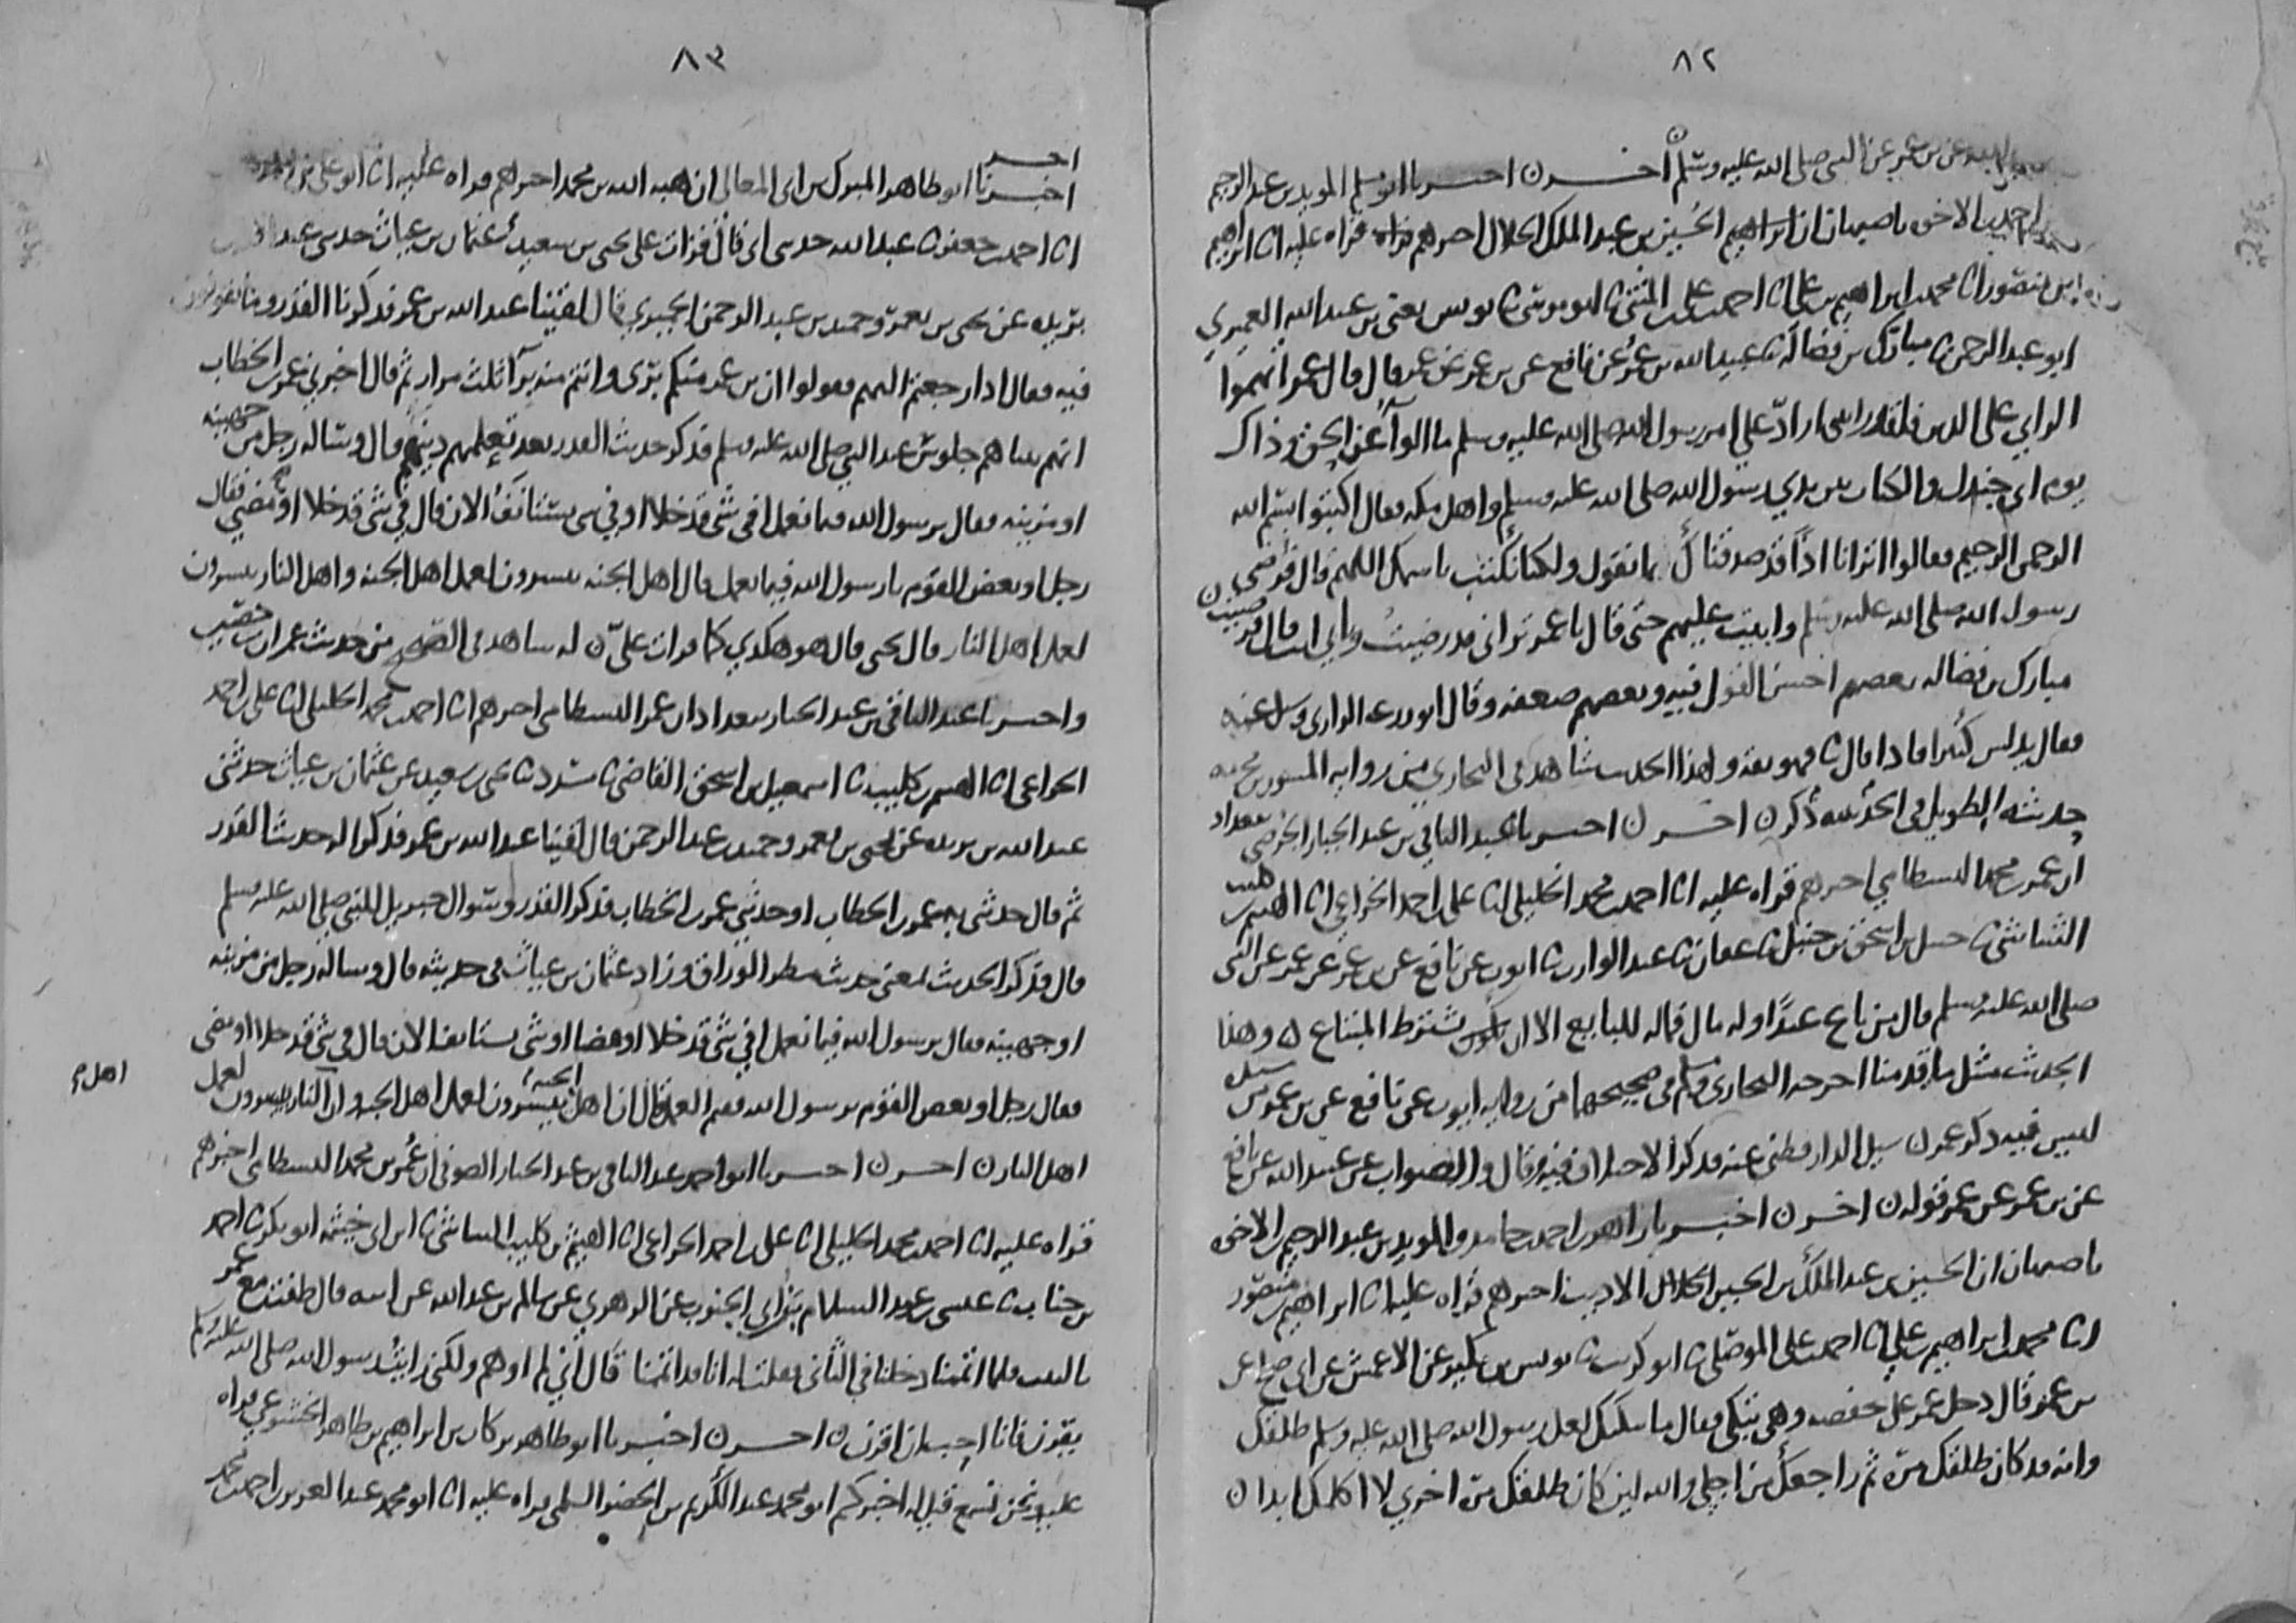 ٨٢
عبيد الله عن بن عمر عن النبي صلى الله عليه وسلم ن آخـــر ن اخبرنا ابو مسلم المويد بن عبد الرحيم
احمد بن الاخوة باصبهان ان الحسين بن عبد الملك الخلال اخبرهم قراه عليه انا ابراهيم
بن منصور انا محمد بن ابراهيم بن علي انا احمد بن علي بن المثنى نا ابو موسى نا يونس يعني بن عبيد الله العميري
ابو عبد الرحمن نا مبارك بن فضالة نا عبيد الله بن عمر عن نافع عن بن عمر عن عمر قال قال عمر اتهموا
الراي على الدين فلقد رايتني اراد علي امر رسول الله صلى الله عليه وسلم ما الوا عن الحق وذاك
يوم ابي جندل والكتاب بين يدي رسول الله صلى الله عليه وسلم واهل مكه فقال اكتبوا بسم الله
الرحمن الرحيم فقالوا اترانا اذا قد صدقناك بما تقول ولكنا نكتب باسمك اللهم قال فرضي
رسول الله صلى الله عليه وسلم وابيت عليهم حتى قال يا عمر تراني قد رضيت وتابى انت قال فرضيت ن
مبارك بن فضاله بعضهم احسن القول فيه وبعضهم ضعفه وقال ابو زرعه الرازي وسيل عنه
فقال يدلس كثيرا فاذا قال نا فهو ثقه ولهذا الحديث شاهد في البخاري من روايه المسور بن مخرمه
حديثه الطويل في الحديبيه ذكر ن آخـــر ن اخبرنا عبد الباقي بن عبد الجبار الحرضي ببغداد
ان عمر بن محمد البسطامي اخبرهم قراه عليه انا احمد بن محمد الخليلي انا علي بن احمد الخزاعي انا الهيثم بن كليب
الشاشي نا حنبل بن اسحق بن حنبل نا عفان نا عبد الوارث نا ايوب عن نافع عن بن عمر عن عمر عن النبي
صلى الله عليه وسلم قال من باع عبدا وله مال فماله للبايع الا ان يشترط المبتاع ن وهذا
الحديث مثل ما قدمنا اخرجه البخاري ومسلم في صحيحهما من روايه ايوب عن نافع عن بن عمر
ليس فيه ذكر عمر ن سيل الدارقطني عنه فذكر الاختلاف فيه وقال والصواب عن عبيد الله عن نافع
عن بن عمر عن عمر قوله ن آخـــر ن اخبرنا زاهر بن احمد بن حامد والمويد بن عبد الرحيم بن الاخوه
باصبهان ان الحسين بن عبد الملك بن الحسين الخلال الاديب اخبرهم قراه عليه انا ابراهيم بن منصور
انا محمد بن ابراهيم بن علي انا احمد بن علي الموصلي نا ابو كريب نا يونس بن بكير عن الاعمش عن ابي صالح عن
بن عمر قال دخل عمر على حفصه وهي تبكي فقال ما يبكيك لعل رسول الله صلى الله عليه وسلم طلقك
وانه قد كان طلقك مرة ثم راجعك من اجلي والله لين كان طلقك مرة اخرى لا اكلمك ابدا ن
٨٣
آخـــر
اخبرنا ابو طاهر المبارك بن ابي المعالي ان هبه الله بن محمد اخبرهم قراه عليه انا ابو علي بن
انا احمد بن جعفر نا عبد الله حدثني ابي قال قرات على يحيى بن سعيد عثمان بن غياث حدثني عبد الله بن
بريده عن يحيى بن يعمر وحميد بن عبد الرحمن الحميري قال لقينا عبد الله بن عمر فذكرنا القدر وما يقولون
فيه فقال اذا رجعتم اليهم فقولوا ان بن عمر منكم بري وانتم منه برآ ثلث مرار ثم قال اخبرني عمر بن الخطاب
انهم بينا هم جلوس عند النبي صلى الله عليه وسلم فذكر حديث القدر بعد تعلمهم دينهم قال وساله رجل من جهينه
او مزينه فقال يرسول الله فيما نعمل افي شي قد خلا او في شي يستانف الان قال في شي قد خلا او مضى فقال
رجل او بعض القوم يا رسول الله فيما نعمل قال اهل الجنه ييسرون لعمل اهل الجنه واهل النار ييسرون
لعمل اهل النار قال يحيى قال هو هكذي كما قرات علي ن له شاهد في الصحيح من حديث عمران بن حصين
واخبرنا عبد الباقي بن عبد الجبار ببغداد ان عمر البسطامي اخبرهم انا احمد بن محمد الخليلي انا علي بن احمد
الخزاعي انا الهيثم بن كليب نا اسمعيل بن اسحق القاضي نا مسدد نا يحيى بن سعيد عن عثمان بن غياث حدثني
عبد الله بن بريده عن يحيى بن يعمر وحميد بن عبد الرحمن قال لقينا عبد الله بن عمر فذكرا له حديث القدر
ثم قال حدثني به عمر بن الخطاب او حدثني عمر بن الخطاب فذكر القدر وسوال جبريل للنبي صلى الله عليه وسلم
قال فذكر الحديث بمعنى حديث مطر الوراق وزاد عثمان بن غياث في حديثه قال وساله رجل من مزينه
او جهينه فقال يرسول الله فيما نعمل افي شي قد خلا او مضا او شي يستانف الان قال في شي قد خلا او مضى
فقال رجل او بعض القوم يرسول الله ففيم العمل قال ان اهل الجنه ييسرون لعمل اهل الجنه وان اهل النار ييسرون لعمل
اهل النار ن آخـــر ن اخبرنا ابو احمد عبد الباقي بن عبد الجبار الصوفي ان عمر بن محمد البسطامي اخبرهم
قراه عليه انا احمد بن محمد الخليلي انا علي بن احمد الخزاعي انا الهيثم بن كليب الشاشي نا ابن ابي خيثمه ابو بكر نا احمد
بن جناب نا عيسى عن عبد السلام بن ابي الجنوب عن الزهري عن سالم بن عبد الله عن ابيه قال طفت مع عمر
بالبيت فلما اتممنا دخلنا في الثاني فقلنا له انا قد اتممنا قال اني لم اوهم ولكني رايت رسول الله صلى الله عليه وسلم
يقرن فانا احب ان اقرن ن آخـــر ن اخبرنا ابو طاهر بركات بن ابراهيم بن طاهر الخشوعي قراه
عليه ونحن نسمع قيل له اخبركم ابو محمد عبد الكريم بن الخضر السلمي قراه عليه انا ابو محمد عبد العزيز بن احمد بن محمد